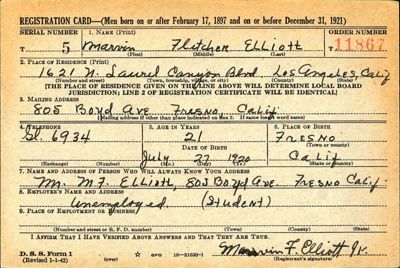 REGISTRATION CARD—(Men born on or after February 17, 1897 and on or before December 31, 1921)
SERIAL NUMBER 1. NAME (Print) ORDER NUMBER
T 5 Marvin Fletcher Elliott T 11867
(First) (Middle) (Last)
2. PLACE OF RESIDENCE (Print)
1621 N. Laurel Canyon Blvd. Los Angeles, Calif
(Number and street) (Town, township, village, or city) (County) (State)
[THE PLACE OF RESIDENCE GIVEN ON THE LINE ABOVE WILL DETERMINE LOCAL BOARD
JURISDICTION; LINE 2 OF REGISTRATION CERTIFICATE WILL BE IDENTICAL]
3. MAILING ADDRESS
805 Boyd Ave Fresno, Calif
[Mailing address if other than place indicated on line 2. If same insert word same]
4. TELEPHONE 5. AGE IN YEARS 6. PLACE OF BIRTH
Gl. 6934 21 Fresno
DATE OF BIRTH (Town or county)
July 27 1920 Calif
(Exchange) (Number) (Mo.) (Day) (Yr.) (State or country)
7. NAME AND ADDRESS OF PERSON WHO WILL ALWAYS KNOW YOUR ADDRESS
Mr. M.F. Elliott, 805 Boyd Ave. Fresno Calif.
8. EMPLOYER'S NAME AND ADDRESS
Unemployed (Student)
9. PLACE OF EMPLOYMENT OR BUSINESS
(Number and street or R. F. D. number) (Town) (County) (State)
I AFFIRM THAT I HAVE VERIFIED ABOVE ANSWERS AND THAT THEY ARE TRUE.
D. S. S. Form 1
(Revised 1-1-42) (over) GPO 16—21630-1 Marvin F. Elliott Jr.
(Registrant's signature)